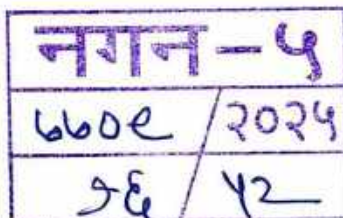 नगन-५
७७०९ / २०२५
२६ / ५२